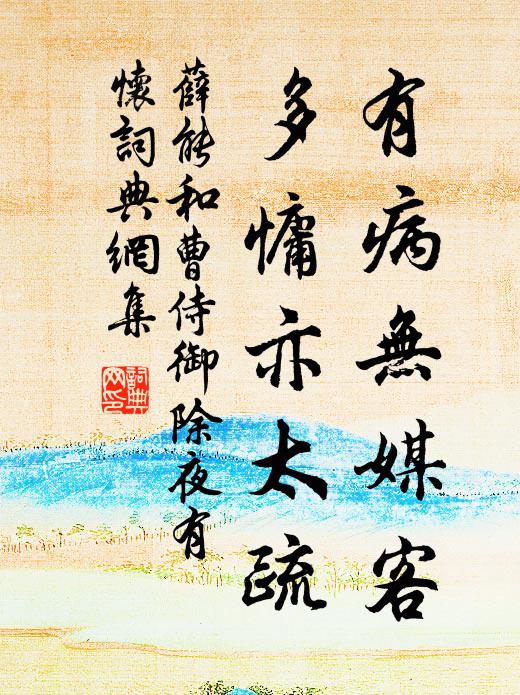 有病無媒客
多慵亦太疏
薛能和曹侍御除夜有
懷詞典網集
詞典
网印